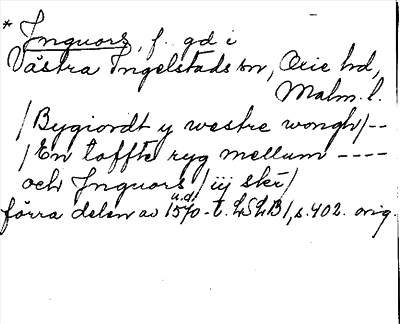 * Jnguors, f. gd i
Västra Ingelstads sn, Oxie hd,
Malm. l.
/Bygiordt y westre wongh/--
/En tofftte ryg mellum ----
och Jnguors /iij skr/
u.d.
förra delen av 1570-t. LSLB1, s. 402. orig.